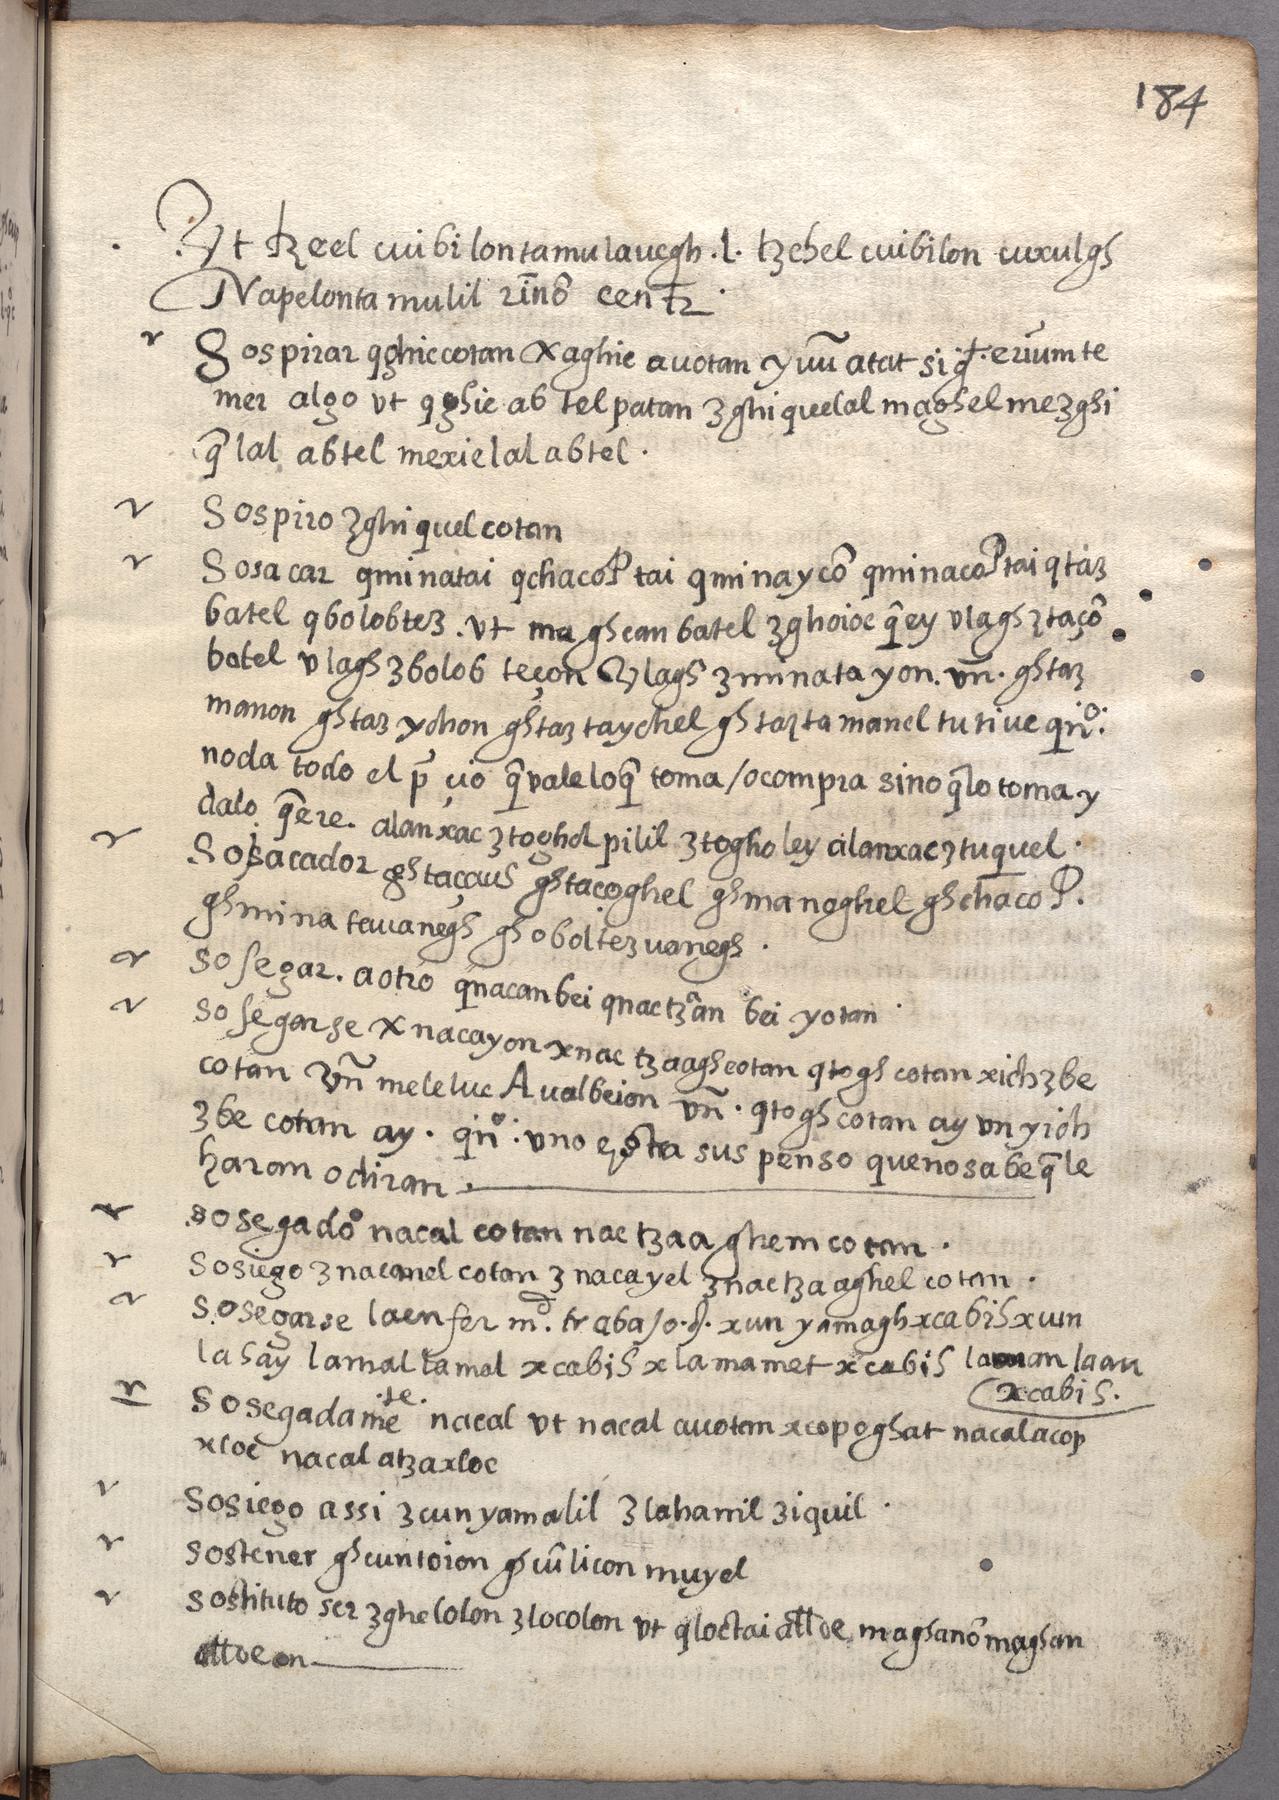 184
Vt tzeel cuibilontamulauegh .l. tzehel cuibilon cuxulgh
Napelonta mulil
Sospirar qghiccotan xaghie auotan atat
mer algo vt qghie ab tel patan zghi queelal maghel mezghi
q̃ lal abtel mexielal abtel.
Sospiro zghi quel cotan
Sosacar qminatai tai qminaycõ tai qtaz
batel qbolobtez .vt ma ghcan batel zghoioc q̃ey vlagh ztaçõ
batel vlagh zbolob teçon vlagh zminata yon. vñ. ghtaz
manon ghtaz ychon ghtaz taychel ghtazta manel tutiue qñº:
noda todo el p̃cio q̃ vale loq̃ toma /ocompra sino q̃lo toma y
dalo q̃ere. alanxac ztoghol pilil ztogholey alanxac ztuquel.
Sosacador ghtaçaugh ghtacoghel ghmanoghel
ghmina teuanegh ghoboltezuanegh.
Sosegar. aotro qnacanbei bei yotan.
Sosegarse xnacayon xnac tzaaghcotan qtogh cotan xichzbe
cotan vñ meleluc Aualbeion vñ. qtogh cotan ay vn yioh
zbe cotan ay. qñº: vno esta sus penso quenosabe q̃ le
haran odiran.
Sosegado nacal cotan nac tzaaghem cotan.
Sosiego znacanel cotan znacayel znactzaaghel cotan.
Sosegarse laenfer mᵈ. trabajo.&. xun yamagh xcabih xun
lahay lamal lamal xcabih xlamamet xcabih laman laau
xcabih.
Sosegadamẽte. nacal vt nacal auotan xcopoghat nacal acop
xloc nacal atzaxloc
Sosiego assi zcunyamalil zlahamil ziquil.
Sostener ghcuntoion licon muyel
Sostituto ser zghelolon zlocolon vt qloctai allde maghanõ maghan
allde on